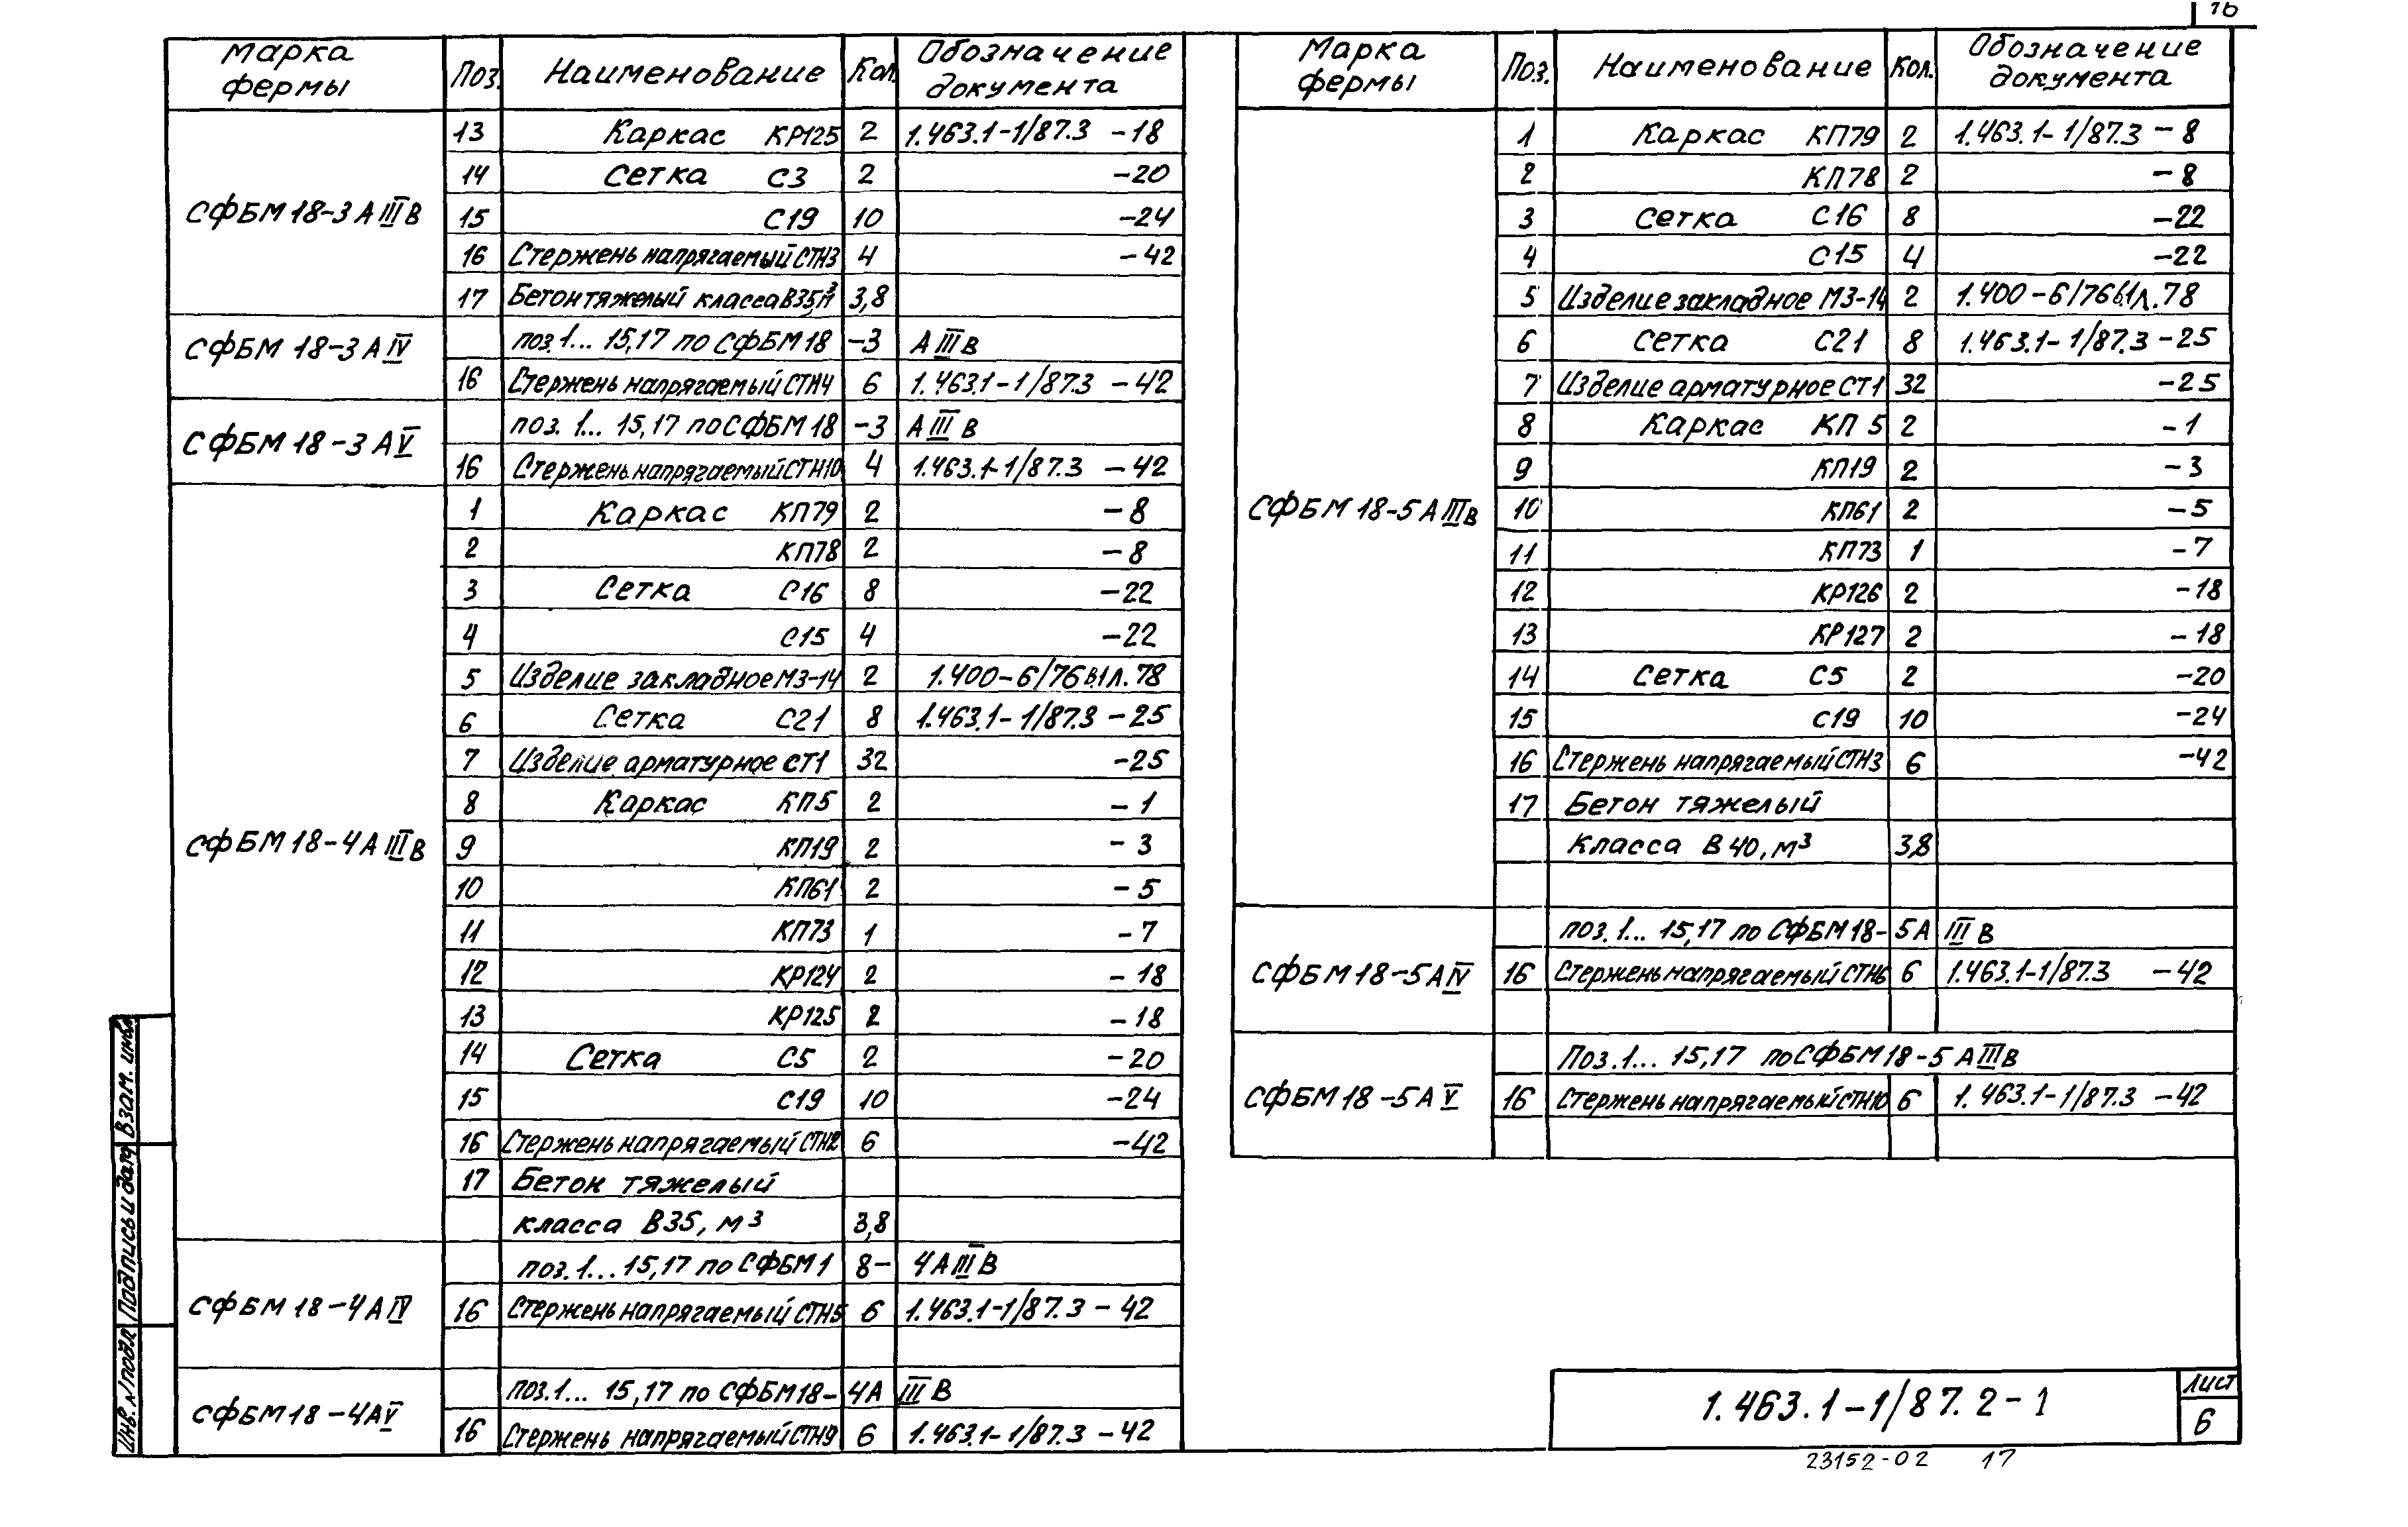 16
Марка фермы Поз. Наименование Кол. Обозначение документа
13 Каркас КР125 2 1.463.1-1/87.3 -18
14 Сетка С3 2 -20
СФБМ 18-3 А III В
15 С19 10 -24
16 Стержень напрягаемый СТН3 4 -42
17 Бетон тяжелый класса В35, м³ 3,8
СФБМ 18-3 А IV
поз. 1... 15,17 по СФБМ 18 -3 А III в
16 Стержень напрягаемый СТН4 6 1.463.1-1/87.3 -42
СФБМ 18-3 А V
поз. 1... 15,17 по СФБМ 18 -3 А III в
16 Стержень напрягаемый СТН10 4 1.463.1-1/87.3 -42
1 Каркас КП79 2 -8
2 КП78 2 -8
3 Сетка С16 8 -22
4 С15 4 -22
5 Изделие закладное МЗ-14 2 1.400-6/76 в.1 л. 78
6 Сетка С21 8 1.463.1-1/87.3 -25
7 Изделие арматурное СТ1 32 -25
8 Каркас КП5 2 -1
СФБМ 18-4 А III В
9 КП19 2 -3
10 КП61 2 -5
11 КП73 1 -7
12 КР124 2 -18
13 КР125 2 -18
14 Сетка С5 2 -20
15 С19 10 -24
16 Стержень напрягаемый СТН2 6 -42
17 Бетон тяжелый
класса В35, м³ 3,8
поз. 1... 15,17 по СФБМ 1 8- 4А III В
СФБМ 18-4 А IV
16 Стержень напрягаемый СТН5 6 1.463.1-1/87.3 -42
поз. 1... 15,17 по СФБМ 18- 4А III В
СФБМ 18-4А V
16 Стержень напрягаемый СТН9 6 1.463.1-1/87.3 -42
Марка фермы Поз. Наименование Кол. Обозначение документа
1 Каркас КП79 2 1.463.1-1/87.3 -8
2 КП78 2 -8
3 Сетка С16 8 -22
4 С15 4 -22
5 Изделие закладное МЗ-14 2 1.400-6/76 в.1 л. 78
6 Сетка С21 8 1.463.1-1/87.3 -25
7 Изделие арматурное СТ1 32 -25
8 Каркас КП 5 2 -1
9 КП19 2 -3
СФБМ 18-5 А III в
10 КП61 2 -5
11 КП73 1 -7
12 КР126 2 -18
13 КР127 2 -18
14 Сетка С5 2 -20
15 С19 10 -24
16 Стержень напрягаемый СТН3 6 -42
17 Бетон тяжелый
класса В 40, м³ 3,8
поз. 1... 15,17 по СФБМ 18- 5А III В
СФБМ 18-5 А IV
16 Стержень напрягаемый СТН6 6 1.463.1-1/87.3 -42
Поз. 1... 15,17 по СФБМ 18-5 А III В
СФБМ 18-5 А V
16 Стержень напрягаемый СТН10 6 1.463.1-1/87.3 -42
Инв. № подл. Подпись и дата Взам. инв.
1.463.1-1/87.2-1
Лист
6
23152-02 17